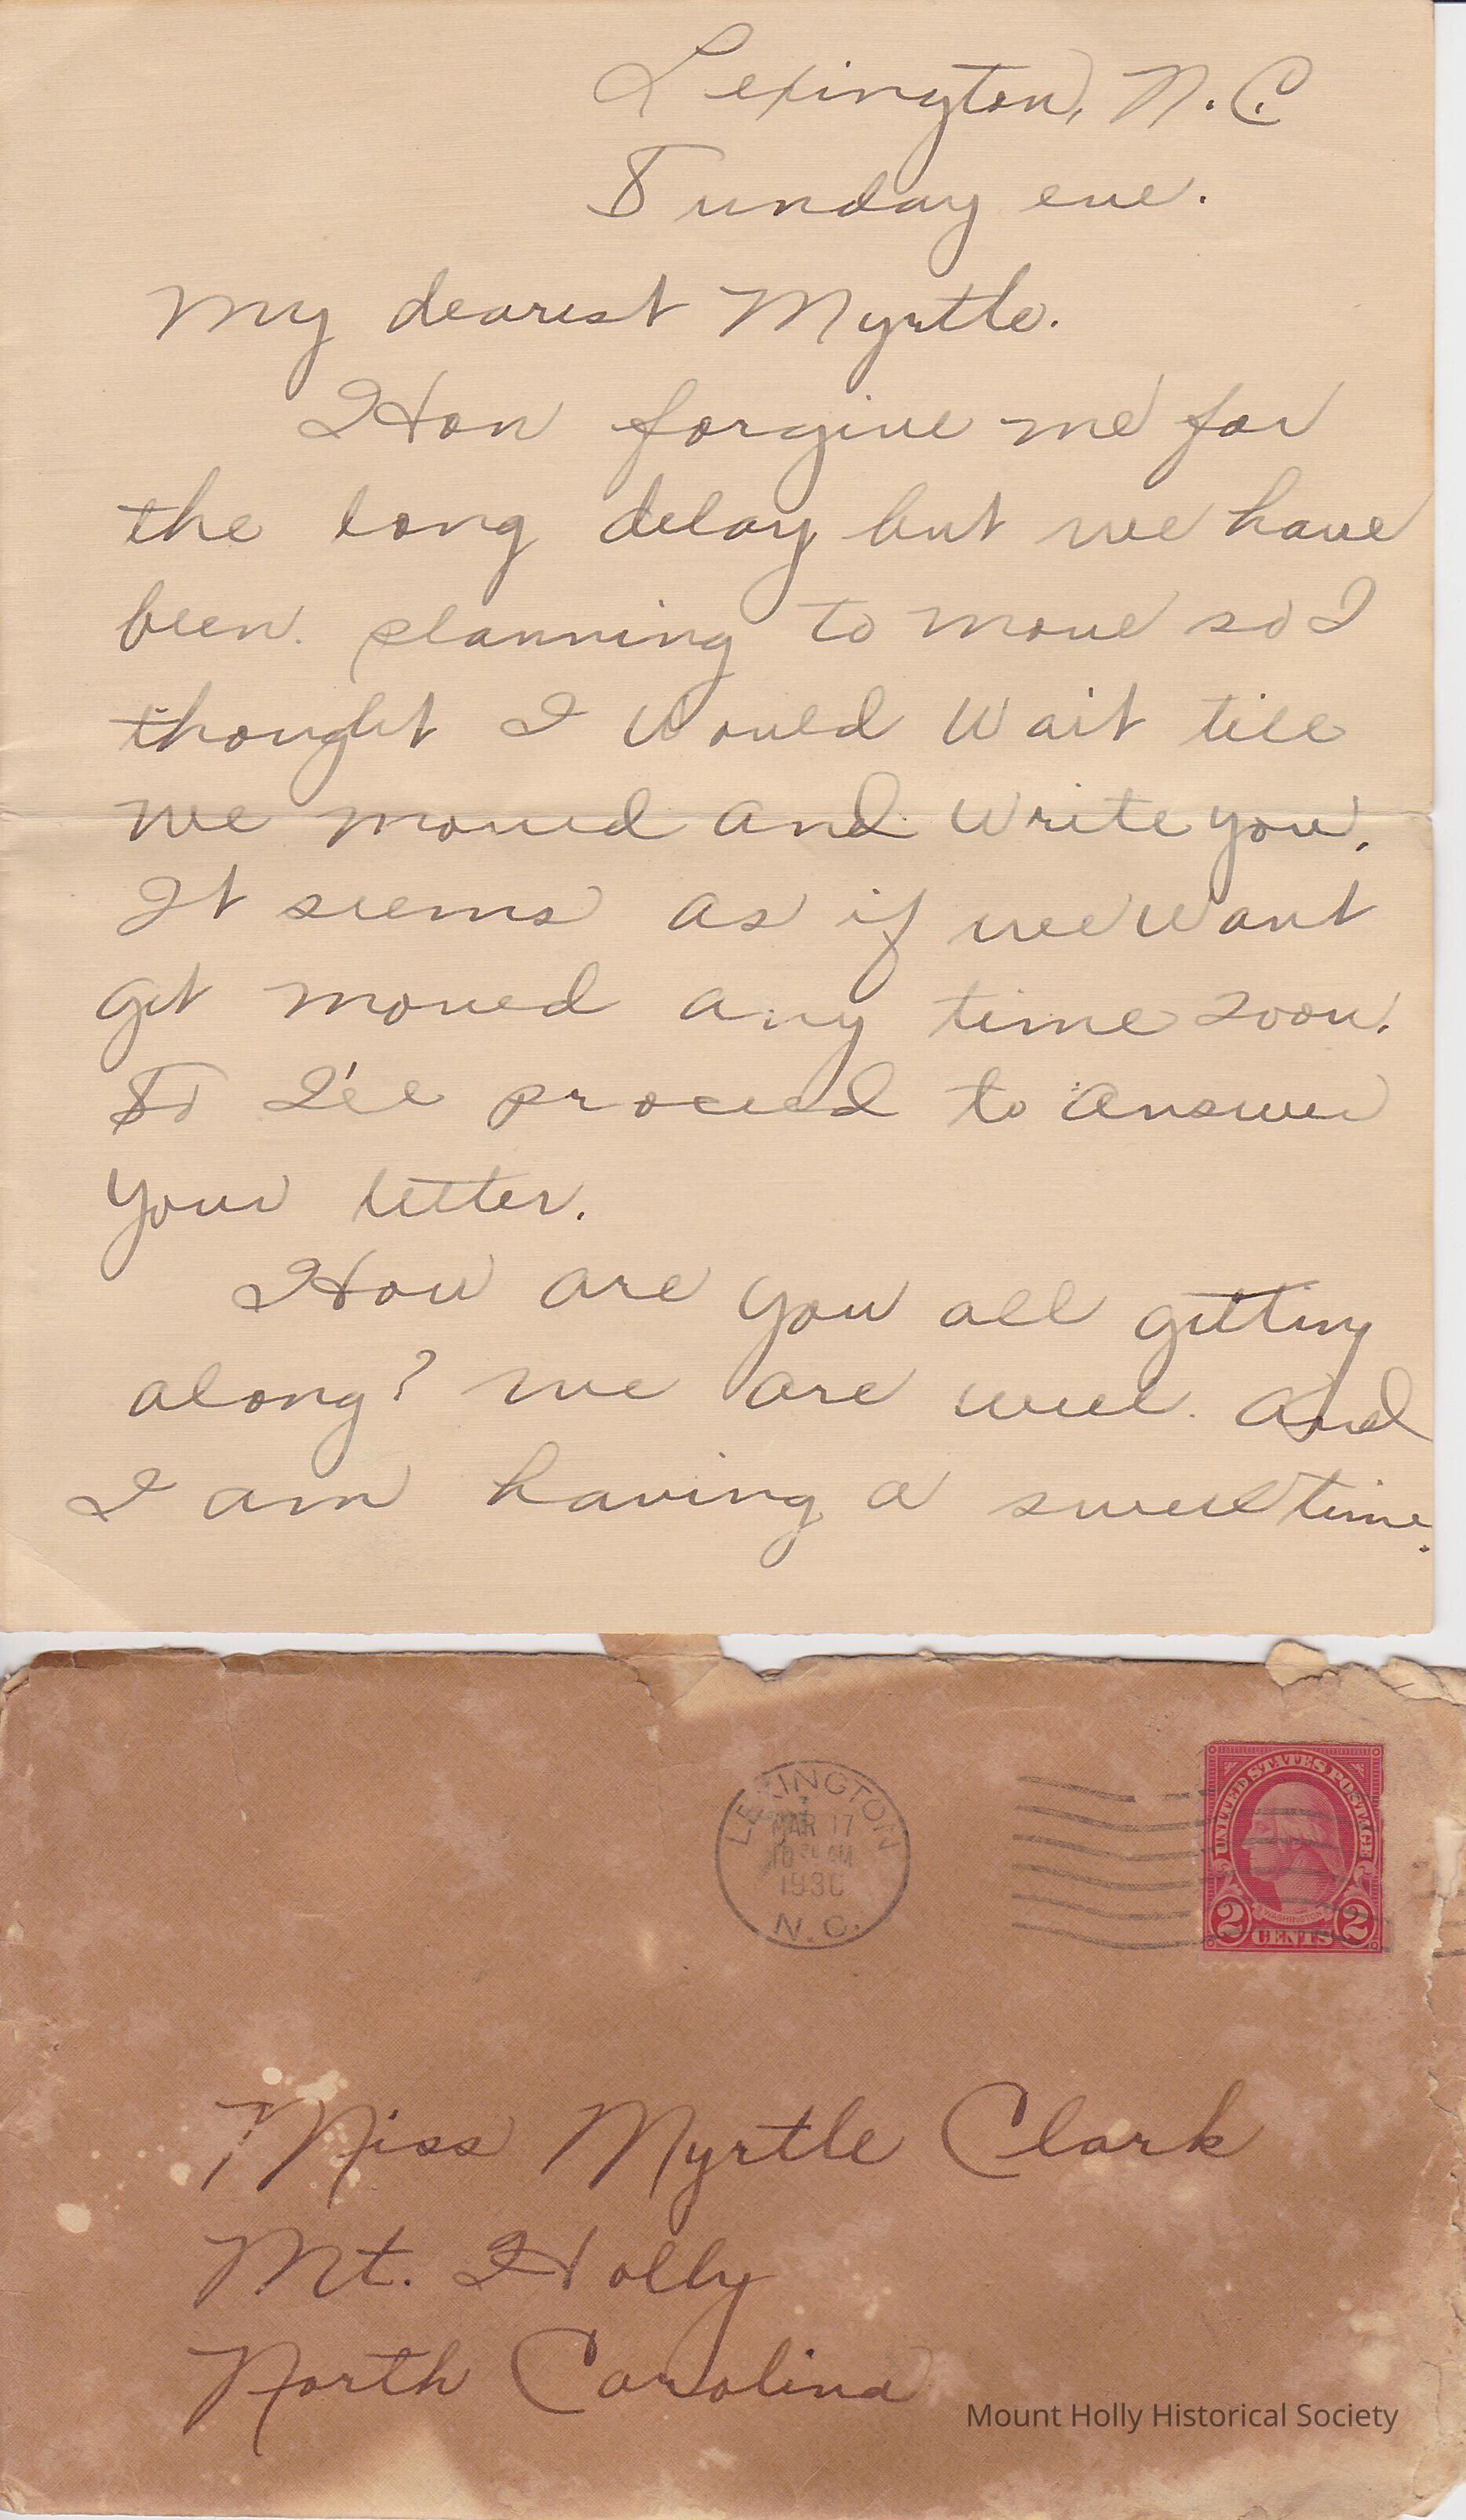 Lexington, N.C.
Sunday eve.
My dearest Myrtle.
Hon forgive me for
the long delay but we have
been. planning to move so I
thought I would wait till
we moved and write you.
It seems as if we want
get moved any time soon.
So I'll proceed to answer
your letter.
How are you all getting
along? we are well. and
I am having a swell time.
LEXINGTON
MAR 17
AM
1930
N.C.
UNITED STATES POSTAGE
WASHINGTON
2 CENTS 2
Miss Myrtle Clark
Mt. Holly
North Carolina
Mount Holly Historical Society